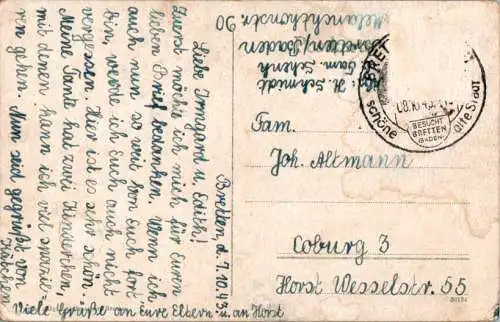 Bretten d. 7.10.43
Liebe Irmgard u. Edith!
Zuerst möchte ich mich für Euren
lieben Brief bedanken. Wenn ich
auch nun so weit von Euch fort
bin, werde ich euch auch nicht
vergessen. Hier ist es sehr schön.
Meine Tante hat zwei Kinderchen,
mit denen kann ich viel spazie-
ren gehen. Nun seid gegrüßt von
Käthchen
Viele Grüße an Eure Eltern u. an Horst
H. Schmidt
Fam. Schenk
Bretten/Baden
Melanchthonstr. 90
BRET
08.10.43
BESUCHT
BRETTEN
(BADEN)
schöne alte Stadt
Fam.
Joh. Altmann
Coburg 3
Horst Wesselstr. 55